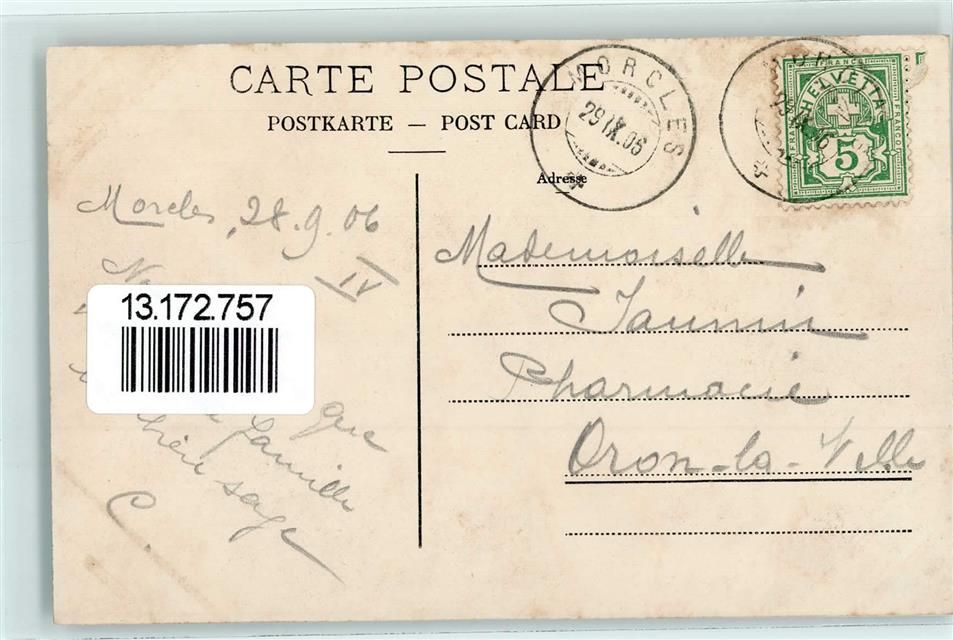 CARTE POSTALE
POSTKARTE — POST CARD
Adresse
MORCLES
29 IX.06
FRANCO
HELVETIA
FRANCO
FRANCO
5
Morcles, 28.9.06
IV
13.172.757
que
famille
sage
C.
Mademoiselle
Jaunin
Pharmacie
Oron-la-Ville